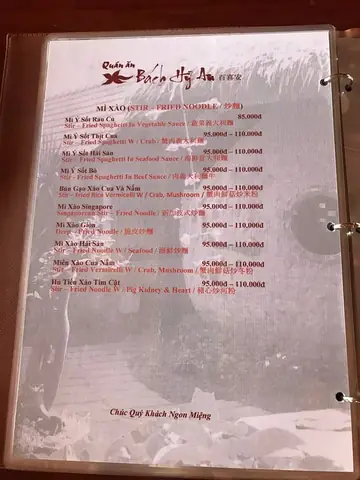 Quán ăn
Bách Hỷ An 百喜安
MÌ XÀO (STIR – FRIED NOODLE / 炒麵)
Mì Ý Sốt Rau Củ 85.000đ
Stir – Fried Spaghetti In Vegetable Sauce / 蔬菜義大利麵
Mì Ý Sốt Thịt Cua 95.000đ – 110.000đ
Stir – Fried Spaghetti W / Crab / 蟹肉義大利麵
Mì Ý Sốt Hải Sản 95.000đ – 110.000đ
Stir – Fried Spaghetti In Seafood Sauce / 海鮮義大利麵
Mì Ý Sốt Bò 95.000đ – 110.000đ
Stir – Fried Spaghetti In Beef Sauce / 肉義大利麵牛
Bún Gạo Xào Cua Và Nấm 95.000đ – 110.000đ
Stir – fried Rice Vermicelli W / Crab, Mushroom / 蟹肉鮮菇炒米粉
Mì Xào Singapore 95.000đ – 110.000đ
Singaporean Stir – Fried Noodle / 新加坡式炒麵
Mì Xào Giòn 95.000đ – 110.000đ
Deep – Fried Noodle / 脆皮炒麵
Mì Xào Hải Sản 95.000đ – 110.000đ
Stir – Fried Noodle W / Seafood / 海鮮炒麵
Miến Xào Cua Nấm 95.000đ – 110.000đ
Stir – Fried Vermicelli W / Crab, Mushroom / 蟹肉鮮菇炒冬粉
Hủ Tiếu Xào Tim Cật 95.000đ – 110.000đ
Stir – Fried Noodle W / Pig Kidney & Heart / 豬心炒河粉
Chúc Quý Khách Ngon Miệng